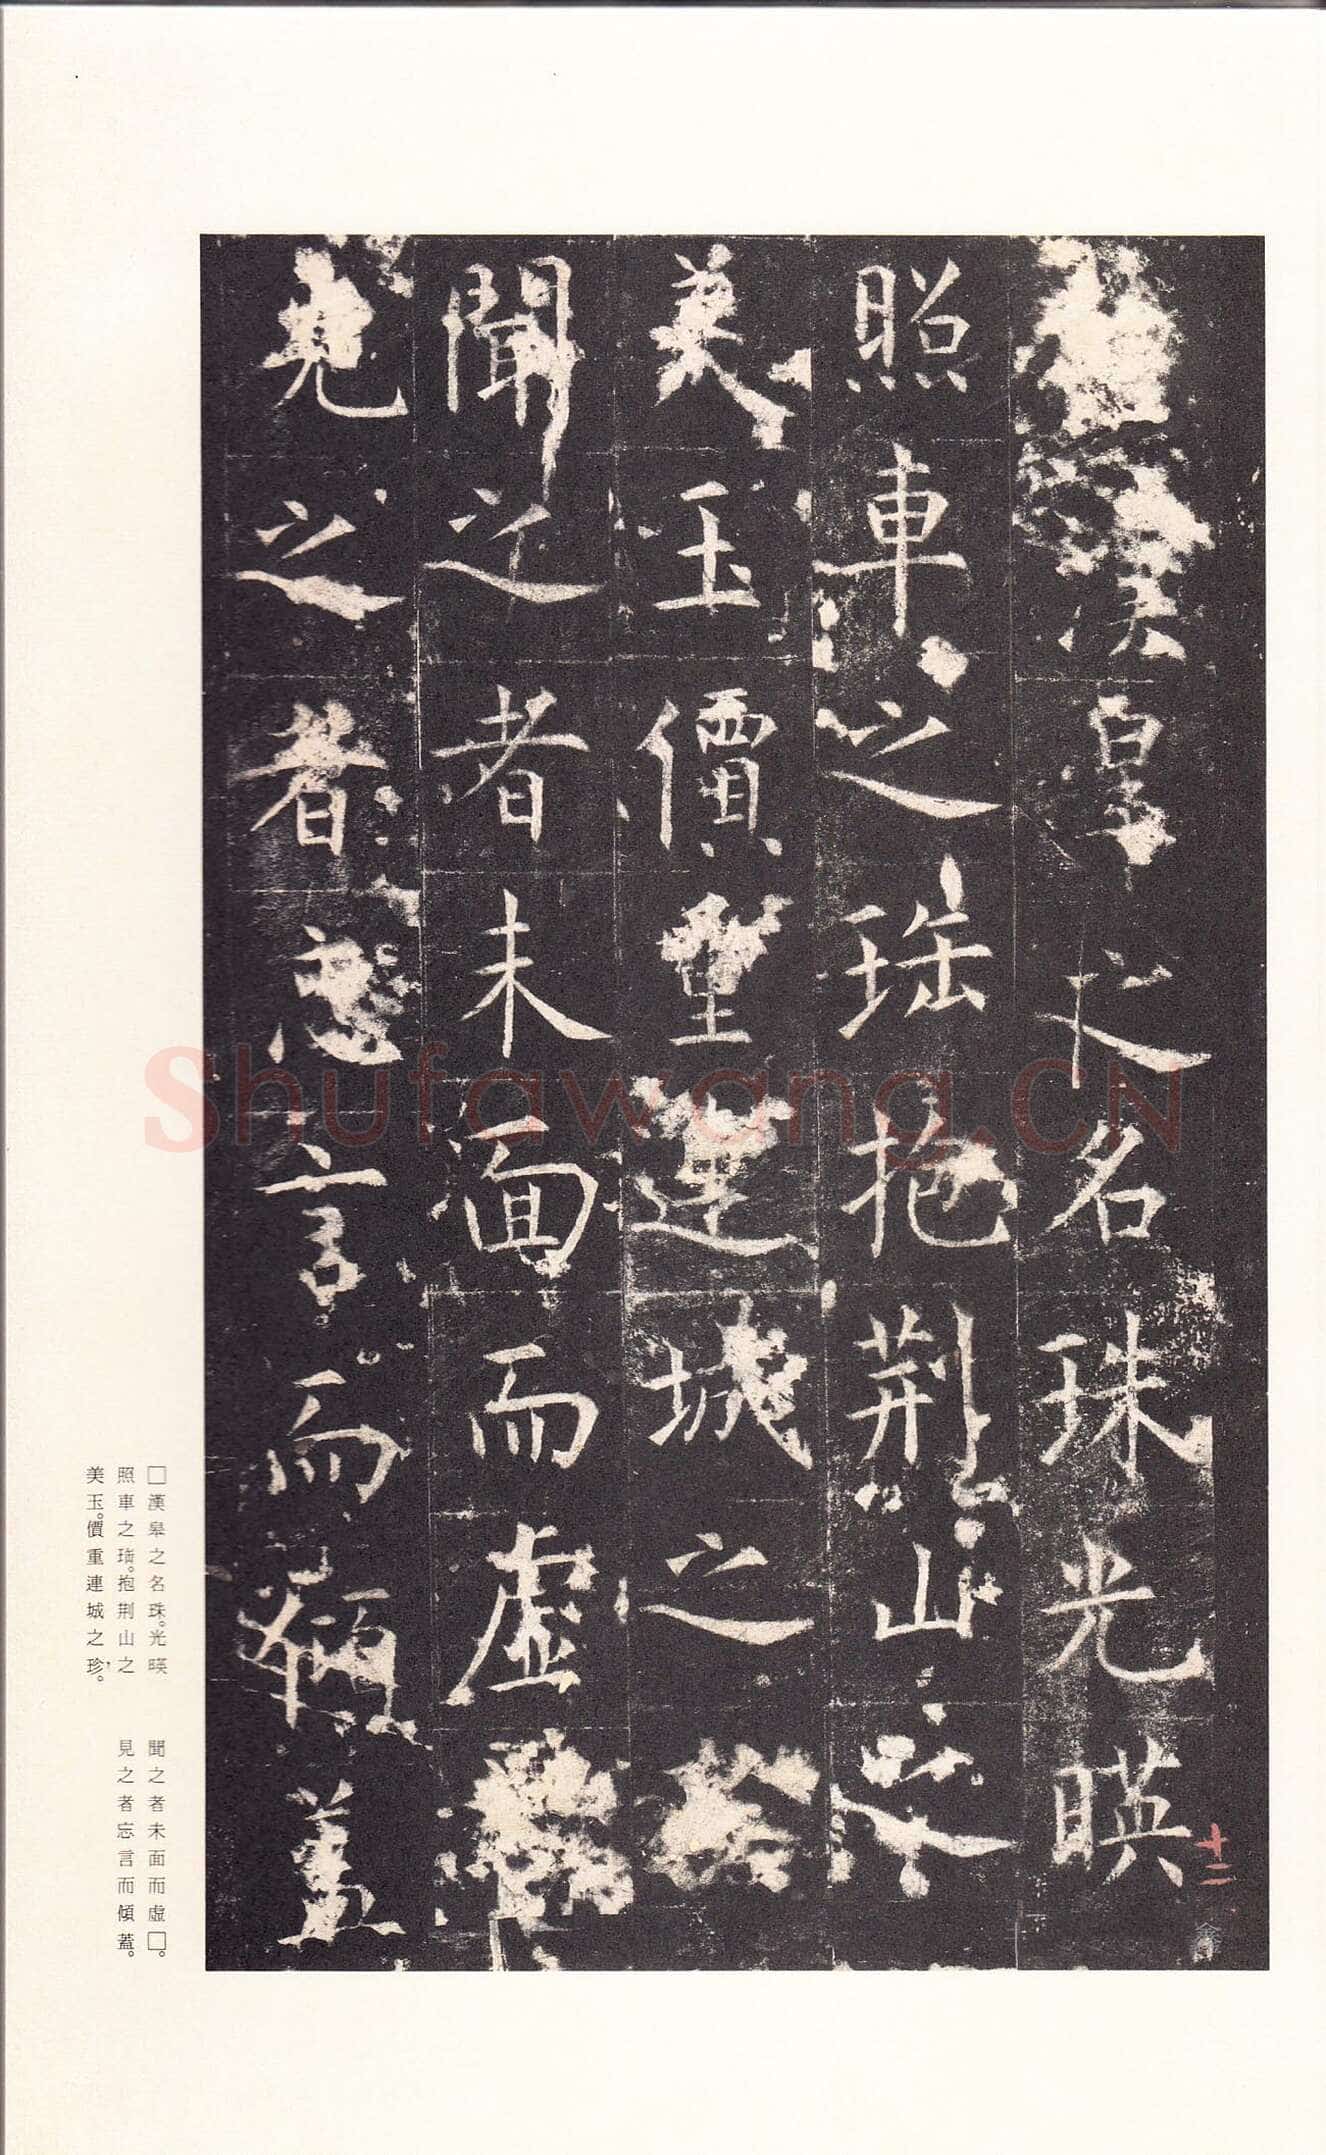 漢皐之名珠光暎
照車之瑎抱荆山之
美玉價重連城之
聞之者未面而虛
見之者忘言而傾蓋
十二
□漢皐之名珠。光暎
照車之瑎。抱荆山之
美玉。價重連城之珍。
聞之者未面而虛□。
見之者忘言而傾蓋。
Shufawang.CN